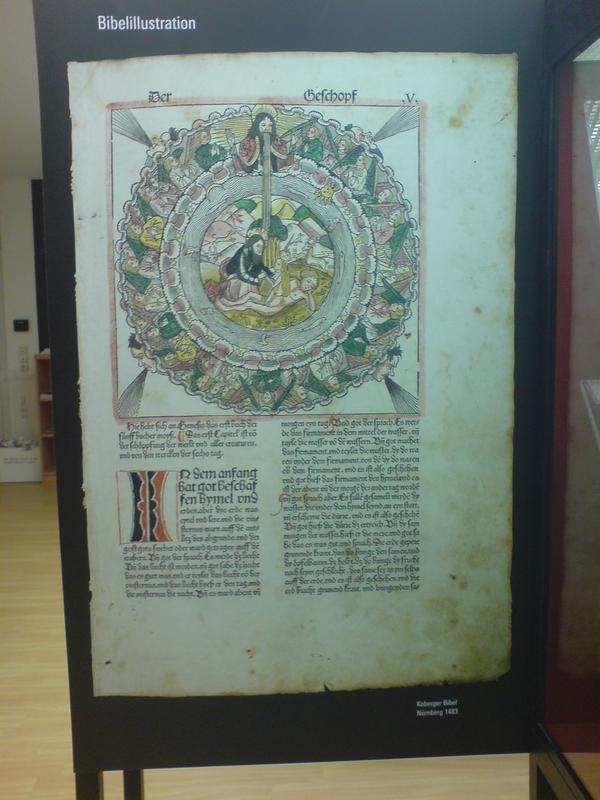 Bibelillustration
Der Geschopf .V.
Hie hebt sich an. Genesis das erst buch der
fünff bucher moysi. Das erst Capitel ist vō
der schöpffung der werlt vnd aller creaturen.
vnd von den wercken der sechs tag.
IN dem anfang
hat got beschaf
fen hymel vnd
erden. aber die erde was
eytel vnd lere. vnd die vin
sternus warn auff dē ant
litz des abgrunds. vnd der
geist gots swebet oder ward getragen auff dē
wassern. Vn̄ got der sprach. Es werde dz liecht
Vn̄ das liecht ist worden. vn̄ got sahe dz liecht
das es gut was. vnd er teylet das liecht vō der
vinsternus. vnd das liecht hieß er den tag. vnd
die vinsternus die nacht. Vn̄ es ward abent vn̄
morgen eyn tag. Vnd got der sprach. Es wer
de das firmament in dem mittel der wasser. vn̄
tayle die wasser vō dē wassern. Vn̄ got machet
das firmament. vnd teylet die wasser. dy do wa
ren vnder dem firmament. von dē dy do waren
ob dem firmament. vnd es ist also geschehen
vnd got hieß das firmament den hymel. vnd es
ist der abent vn̄ der morgē der ander tag wordē
Vn̄ got sprach aber. Es sulln gesamelt werdē dy
wasser. die vnder dem hymel seynd. an eyn statt.
vn̄ erscheine die dürre. vnd es ist also geschehē
Vn̄ got hieß die dürre dz ertreich. Vn̄ dy sam
nungen der wasser. hieß er die mere. vnd got sa
he das es was gut. vnd sprach. Die erde
grunend kraut.
auff der erde. vnd es ist also geschehen. vnd die
erd bracht grunend kraut. vnd bringenden sa
Koberger Bibel
Nürnberg 1483